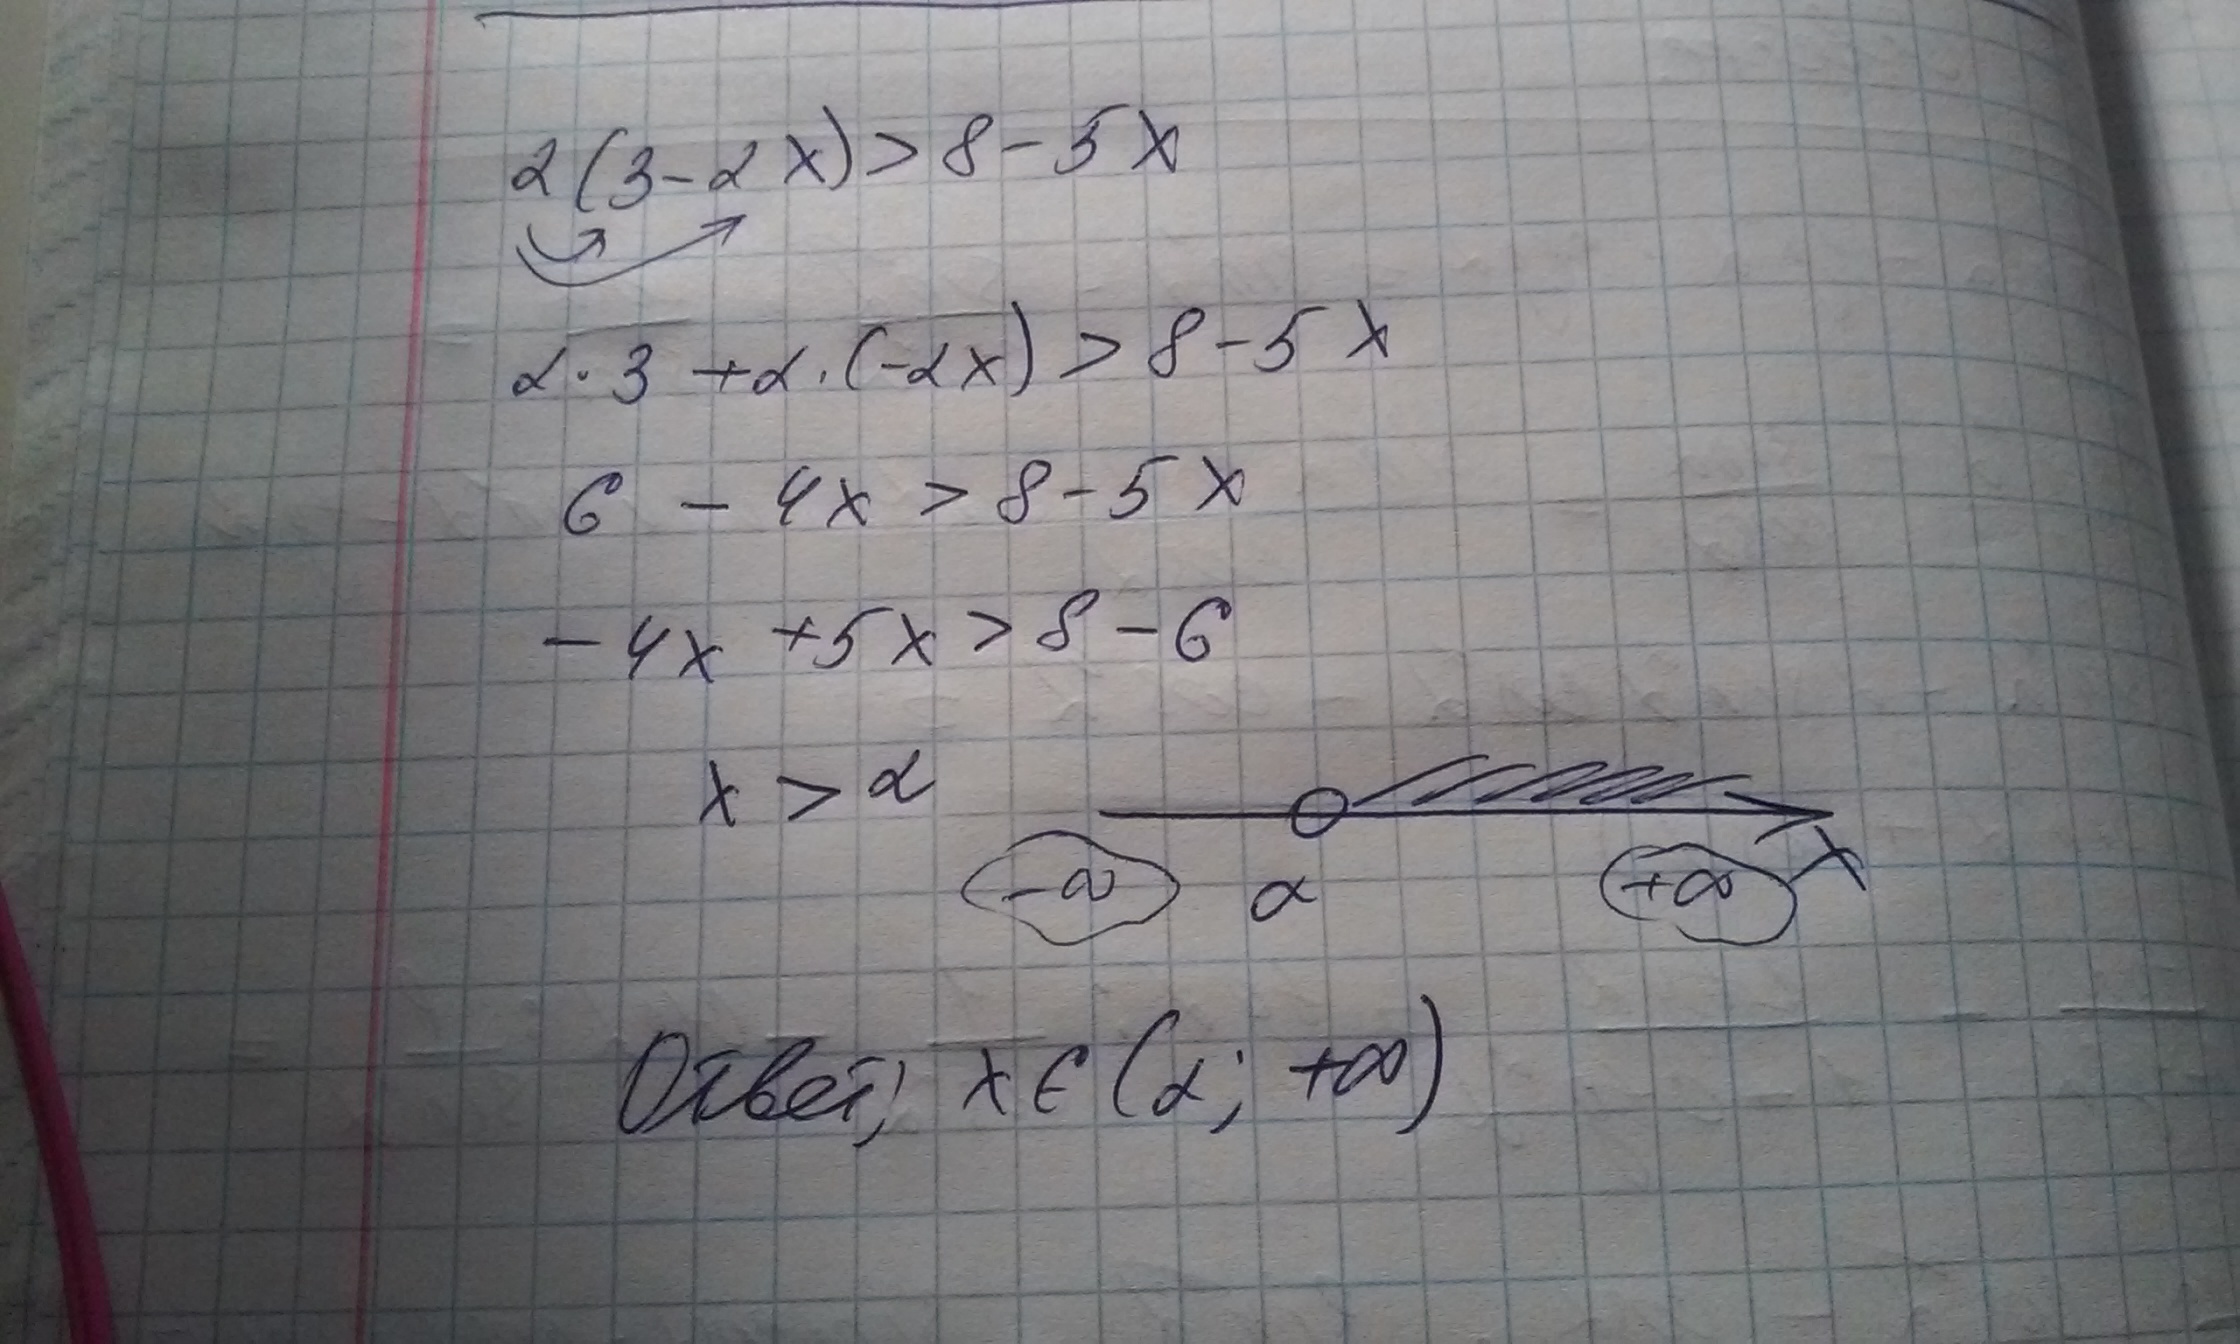 2(3-2x)>8-5x
2·3+2·(-2x)>8-5x
6-4x>8-5x
-4x+5x>8-6
x>2
-∞ 2 +∞ x
Ответ; x∈(2; +∞)